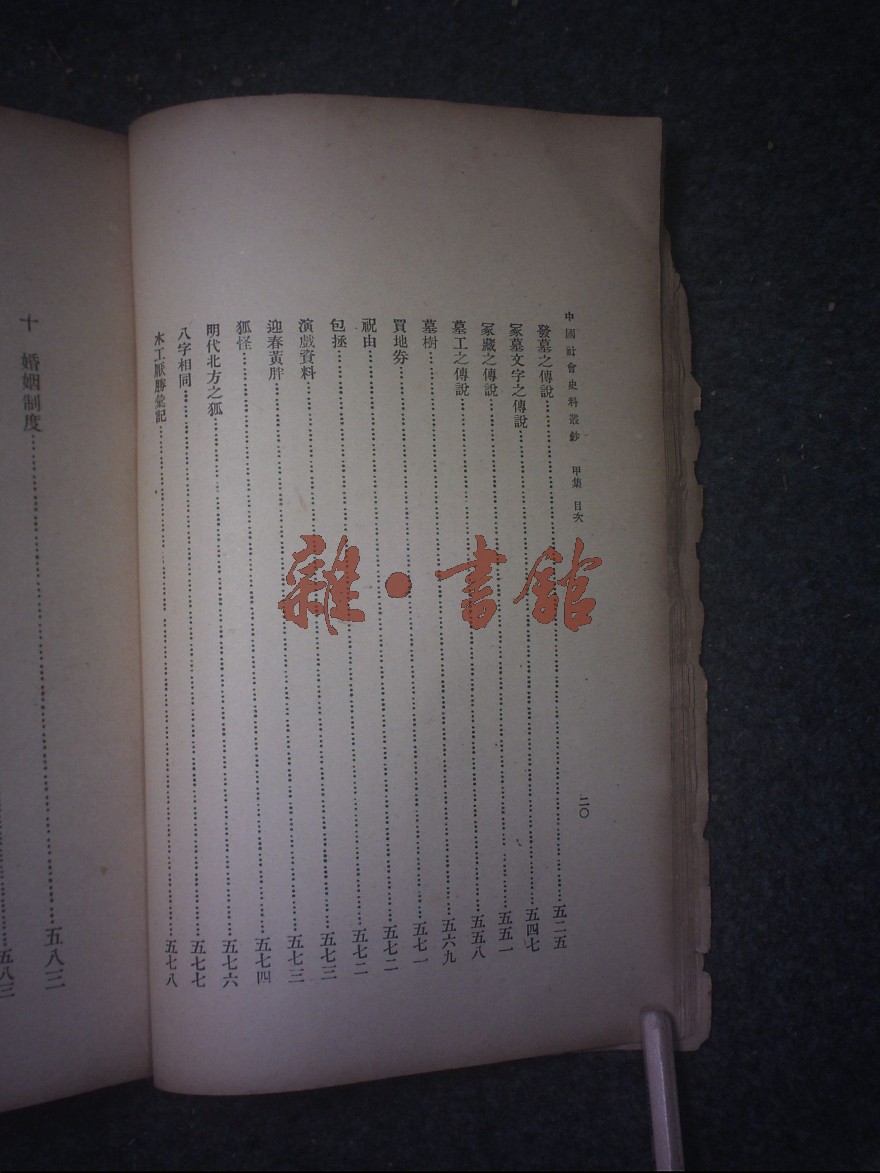 中國社會史料叢鈔 甲集 目次 二〇
發墓之傳說……五二五
冢墓文字之傳說……五四七
冢藏之傳說……五五一
墓工之傳說……五五八
墓樹……五六九
買地券……五七一
祝由……五七二
包拯……五七二
演戲資料……五七三
迎春黃胖……五七三
狐怪……五七四
明代北方之狐……五七六
八字相同……五七七
木工厭勝彙記……五七八
十 婚姻制度……五八三
五八三
雜·書館